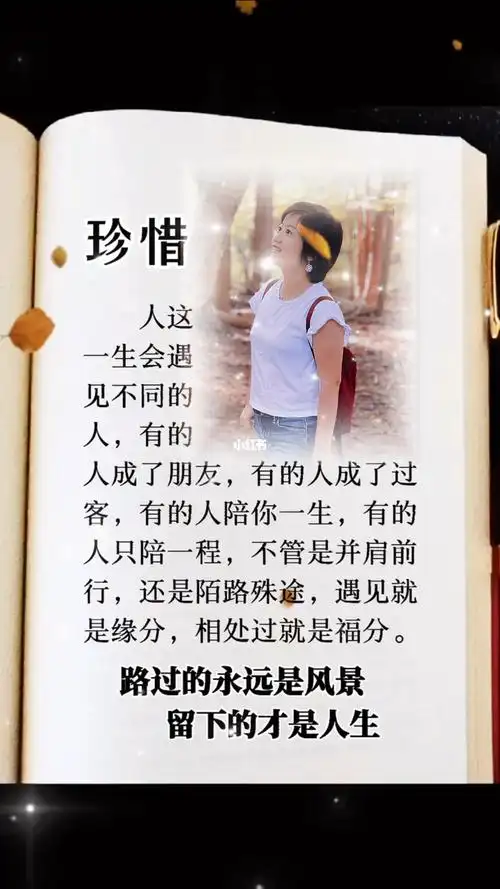 珍惜
人这
一生会遇
见不同的
人，有的
小红书
人成了朋友，有的人成了过
客，有的人陪你一生，有的
人只陪一程，不管是并肩前
行，还是陌路殊途，遇见就
是缘分，相处过就是福分。
路过的永远是风景
留下的才是人生